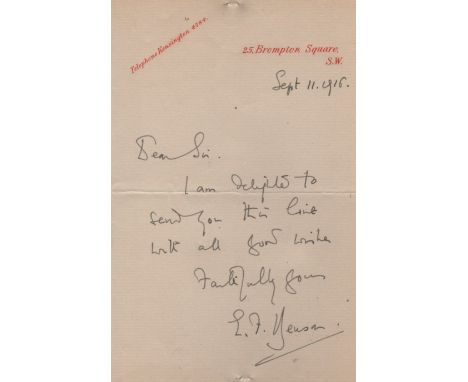 Telephone Kensington
25, Brompton Square,
S.W.
Sept 11. 1916.
Dear Sir.
I am delighted to
send you this line
with all good wishes
Faithfully yours
E. F. Benson.